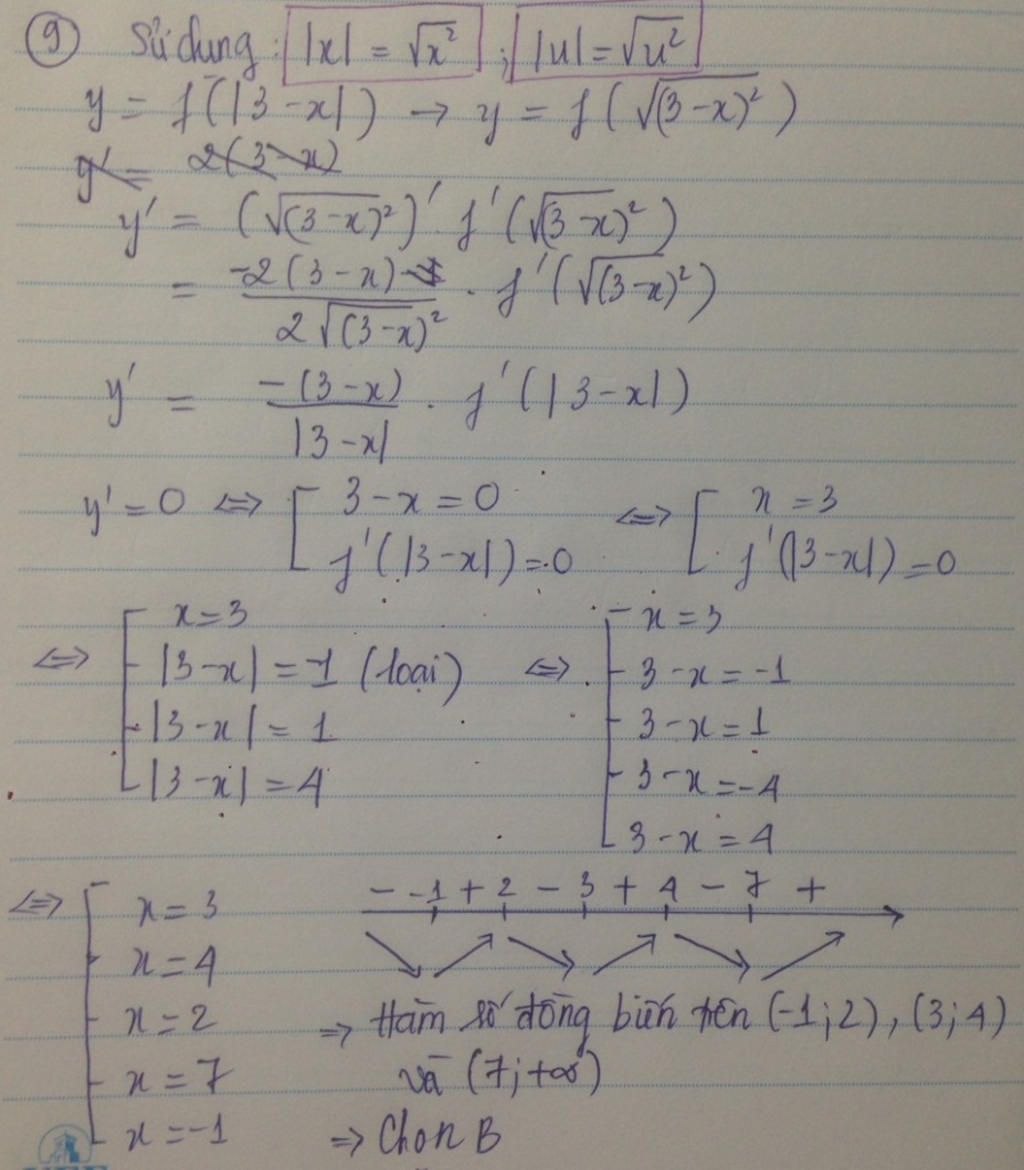 9 Sử dụng: |x| = √x² ; |u| = √u²
y = f(|3-x|) → y = f(√(3-x)²)
y' = 2(3-x)
y' = (√(3-x)²)'. f'(√(3-x)²)
= -2(3-x) / 2√(3-x)² . f'(√(3-x)²)
y' = -(3-x) / |3-x| . f'(|3-x|)
y' = 0 ⇔ [ 3-x = 0 ⇔ [ x = 3
f'(|3-x|) = 0 f'(|3-x|) = 0
⇔ [ x = 3 ⇔ [ x = 3
|3-x| = -1 (loại) 3-x = -1
|3-x| = 1 3-x = 1
|3-x| = 4 3-x = -4
3-x = 4
⇔ [ x = 3 - -1 + 2 - 3 + 4 - 7 +
x = 4
x = 2 ⇒ Hàm số đồng biến trên (-1;2), (3;4)
x = 7 và (7;+∞)
x = -1 ⇒ Chọn B